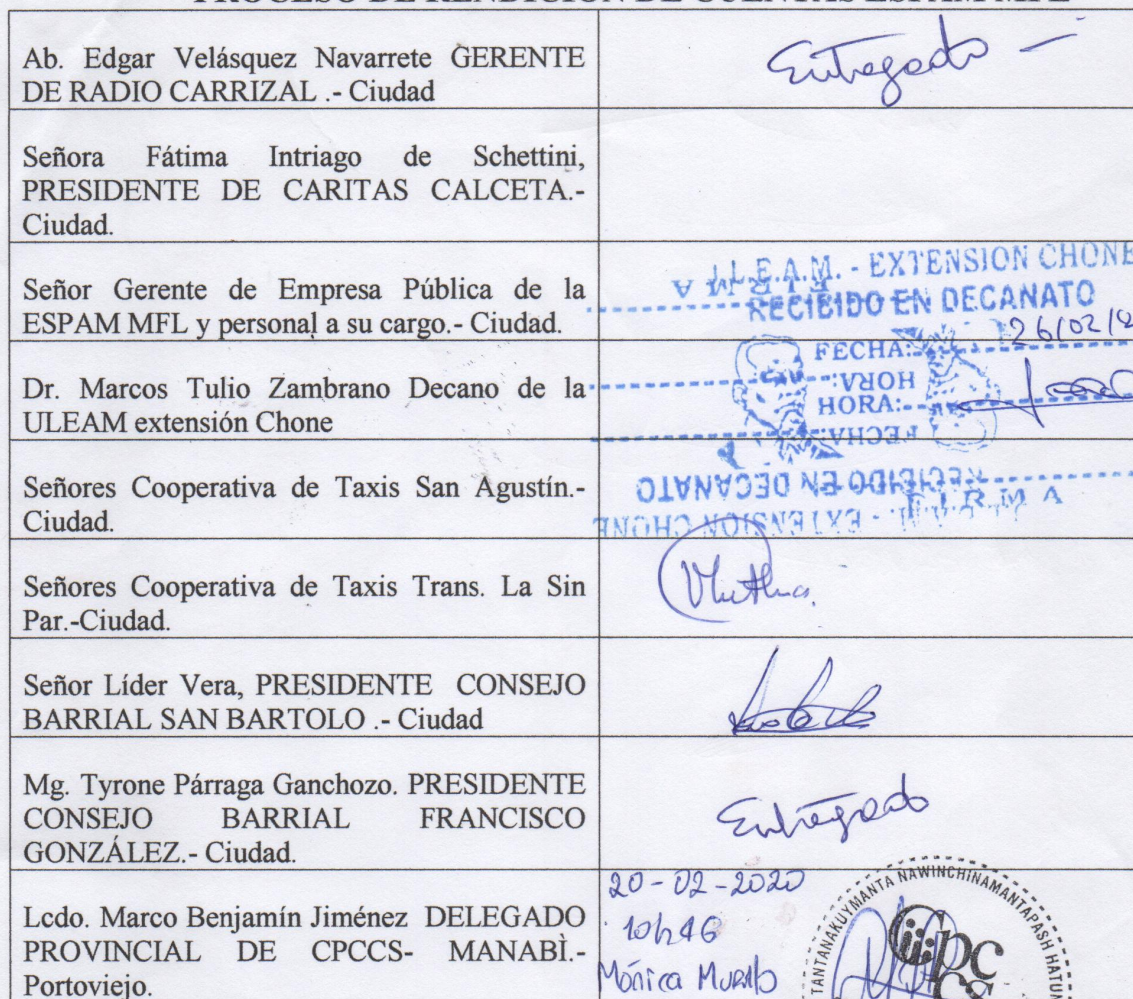 PROCESO DE RENDICIÓN DE CUENTAS ESPAM MFL
Ab. Edgar Velásquez Navarrete GERENTE
DE RADIO CARRIZAL .- Ciudad
Entregado
Señora Fátima Intriago de Schettini,
PRESIDENTE DE CARITAS CALCETA.-
Ciudad.
Señor Gerente de Empresa Pública de la
ESPAM MFL y personal a su cargo.- Ciudad.
U.L.E.A.M. - EXTENSION CHONE
RECIBIDO EN DECANATO
FECHA: 26/02/2
HORA:
Dr. Marcos Tulio Zambrano Decano de la
ULEAM extensión Chone
HORA:
FECHA:
Señores Cooperativa de Taxis San Agustín.-
Ciudad.
RECIBIDO EN DECANATO
FIRMA
EXTENSION CHONE
Señores Cooperativa de Taxis Trans. La Sin
Par.-Ciudad.
Señor Líder Vera, PRESIDENTE CONSEJO
BARRIAL SAN BARTOLO .- Ciudad
Mg. Tyrone Párraga Ganchozo. PRESIDENTE
CONSEJO BARRIAL FRANCISCO
GONZÁLEZ.- Ciudad.
Entregado
Lcdo. Marco Benjamín Jiménez DELEGADO
PROVINCIAL DE CPCCS- MANABÌ.-
Portoviejo.
20-02-2020
10h46
Mónica
TANTANAKUYMANTA NAWINCHINAMANTAPASH HATU
cpc
cs